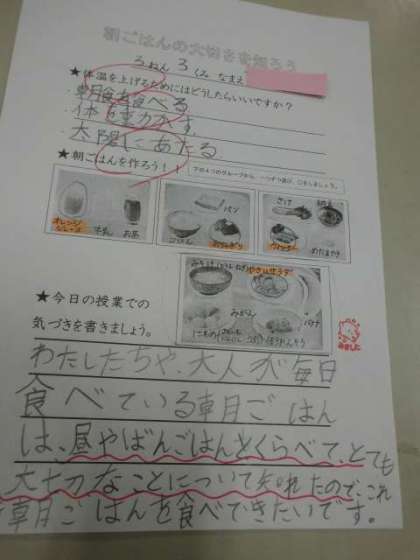 朝ごはんの大切さを知ろう
3ねん 3くみ なまえ
★体温を上げるためにはどうしたらいいですか?
・朝食を食べる
・体を動かす。
・太陽にあたる
★朝ごはんを作ろう!
下の4つのグループから、一つずつ選び、○をしましょう。
オレンジジュース 牛乳 お茶
ごはん パン おにぎり
さけ 納豆 ウィンナー めだまやき
みそ汁 やさいサラダ
みかん バナナ
★今日の授業での
気づきを書きましょう。
わたしたちや、大人が毎日
食べている朝ごはん
は、昼やばんごはんとくらべて、とても
大切なことについて知れたので、これ
朝ごはんを食べてきたいです。
みました